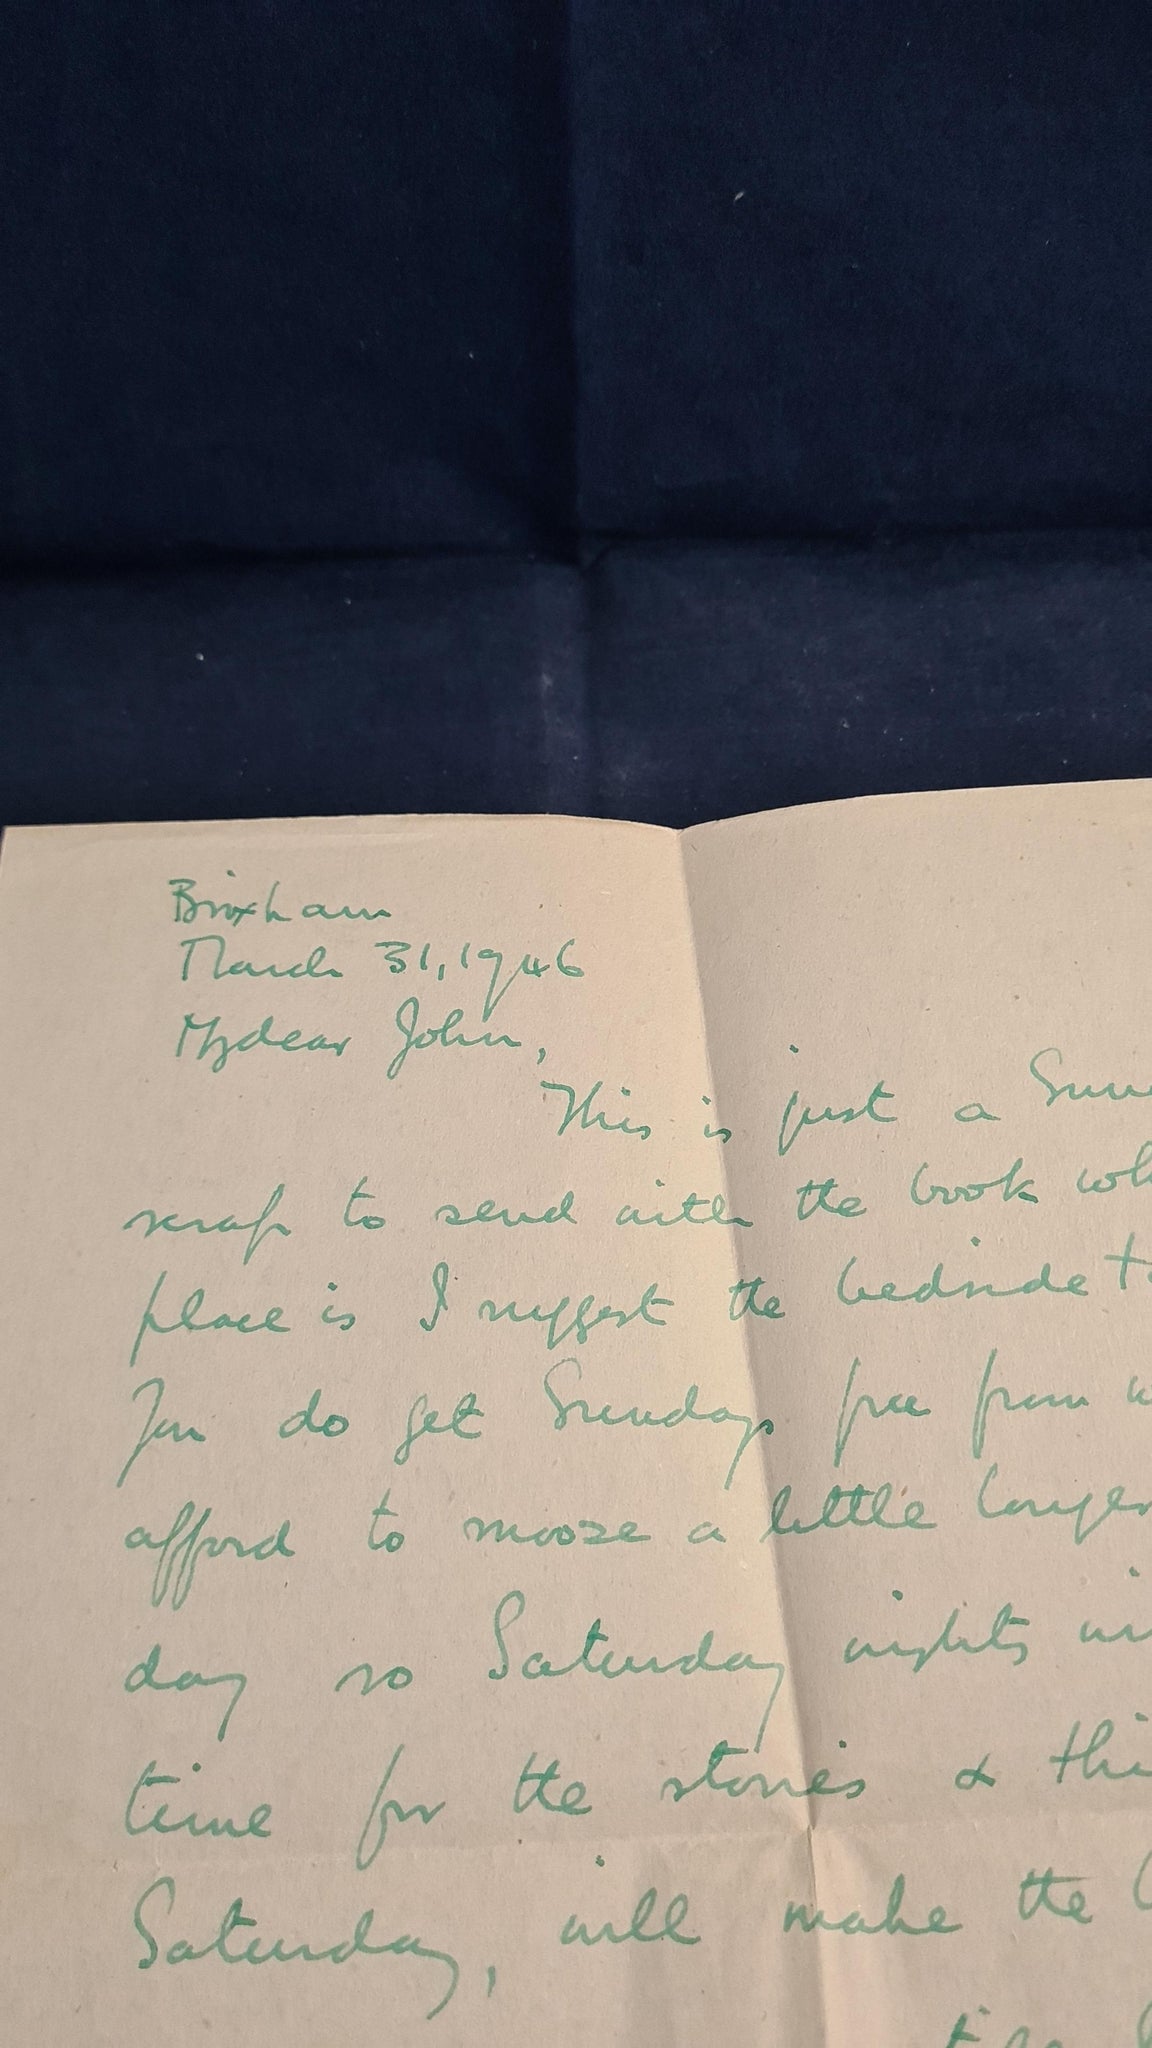 Brixham
March 31, 1946
My dear John,
This is just a
scrap to send with the book
place is I suggest the bedside
You do get Sundays free from
afford to snooze a little longer
day so Saturday nights
time for the stories &
Saturday, will make the